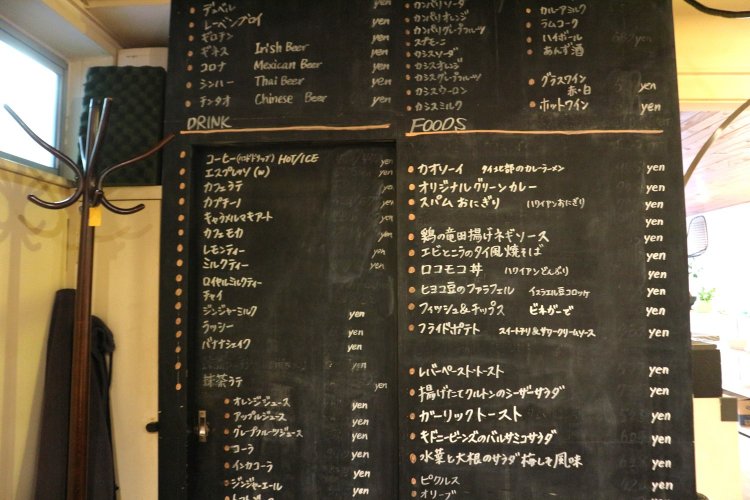 デュベル
レーベンブロイ yen
ギロチン yen
ギネス Irish Beer yen
コロナ Mexican Beer yen
シンハー Thai Beer yen
チンタオ Chinese Beer yen
カンパリソーダ
カンパリオレンジ
カンパリグレープフルーツ
スプモーニ
カシスソーダ
カシスオレンジ
カシスグレープフルーツ
カシスウーロン
カシスミルク
カルーアミルク
ラムコーク
ハイボール yen
あんず酒
グラスワイン yen
赤・白
ホットワイン yen
DRINK
コーヒー(ハンドドリップ) HOT/ICE yen
エスプレッソ (w) yen
カフェラテ yen
カプチーノ yen
キャラメルマキアート yen
カフェモカ yen
レモンティー yen
ミルクティー yen
ロイヤルミルクティー
チャイ
ジンジャーミルク yen
ラッシー yen
バナナシェイク yen
抹茶ラテ yen
オレンジジュース yen
アップルジュース yen
グレープフルーツジュース yen
コーラ yen
インカコーラ yen
ジンジャーエール yen
FOODS
カオソーイ タイ北部のカレーラーメン yen
オリジナルグリーンカレー yen
スパムおにぎり ハワイアンおにぎり yen
鶏の竜田揚げネギソース yen
エビとニラのタイ風焼そば yen
ロコモコ丼 ハワイアンどんぶり yen
ヒヨコ豆のファラフェル イスラエル豆コロッケ yen
フィッシュ&チップス ビネガーで yen
フライドポテト スイートチリ&サワークリームソース yen
レバーペーストトースト yen
揚げたてクルトンのシーザーサラダ yen
ガーリックトースト yen
キドニービーンズのバルサミコサラダ yen
水菜と大根のサラダ梅しそ風味 yen
ピクルス yen
オリーブ yen